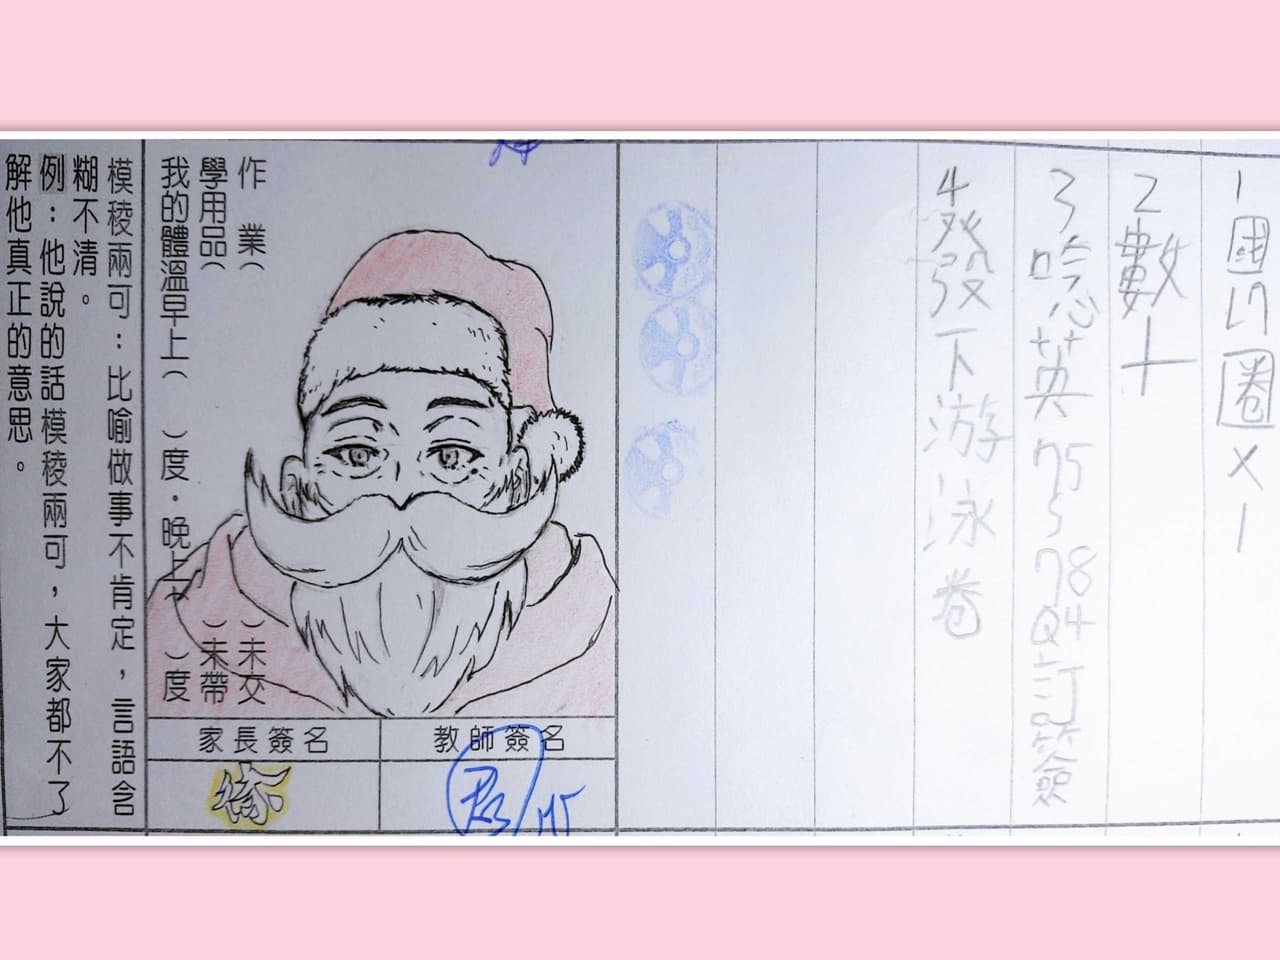 1國ㄅ圈×1
2數十
3唸英75、78 Q4訂簽
4發下游泳卷
作業（ ）未交
學用品（ ）未帶
我的體溫早上（ ）度．晚上（ ）度
家長簽名
教師簽名
模稜兩可：比喻做事不肯定，言語含
糊不清。
例：他說的話模稜兩可，大家都不了
解他真正的意思。